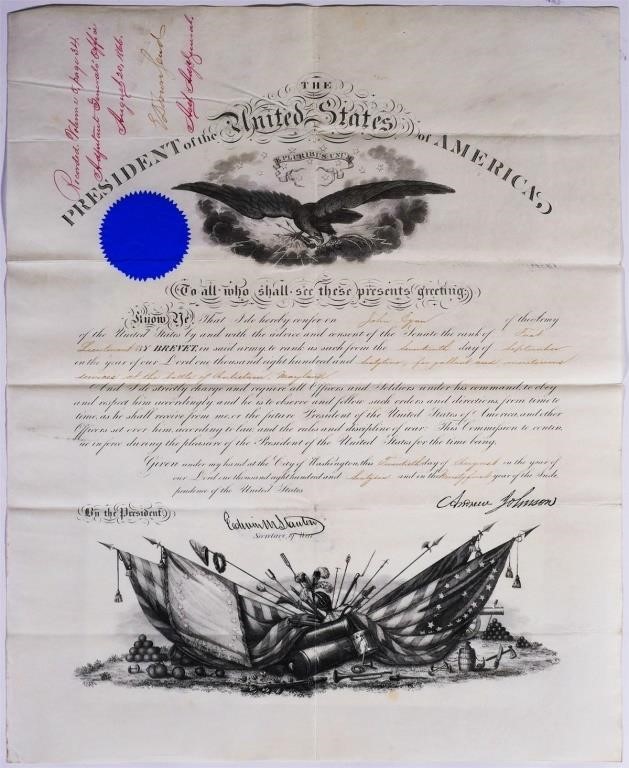 Recorded Volume 5, page 34.
Adjutant General's Office
August 20, 1866.
Asst Adjt General.
THE
PRESIDENT of the United States of AMERICA,
E PLURIBUS UNUM
To all who shall see these presents greeting:
Know Ye, That I do hereby confer on John Egan of the Army
of the United States by and with the advice and consent of the Senate the rank of First
Lieutenant BY BREVET, in said army to rank as such from the seventeenth day of September
in the year of our Lord one thousand eight hundred and sixty two, for gallant and meritorious
services at the battle of Antietam, Maryland
And I do strictly charge and require all Officers and Soldiers under his command to obey
and respect him accordingly, and he is to observe and follow such orders and directions, from time to
time, as he shall receive from me, or the future President of the United States of America, and other
Officers set over him, according to law, and the rules and discipline of war. This Commission to contin
ue in force during the pleasure of the President of the United States for the time being.
Given under my hand at the City of Washington, this Twentieth day of August in the year of
our Lord one thousand eight hundred and sixty six and in the ninety first year of the Inde
pendence of the United States
Andrew Johnson
By the President,
Edwin M Stanton
Secretary of War